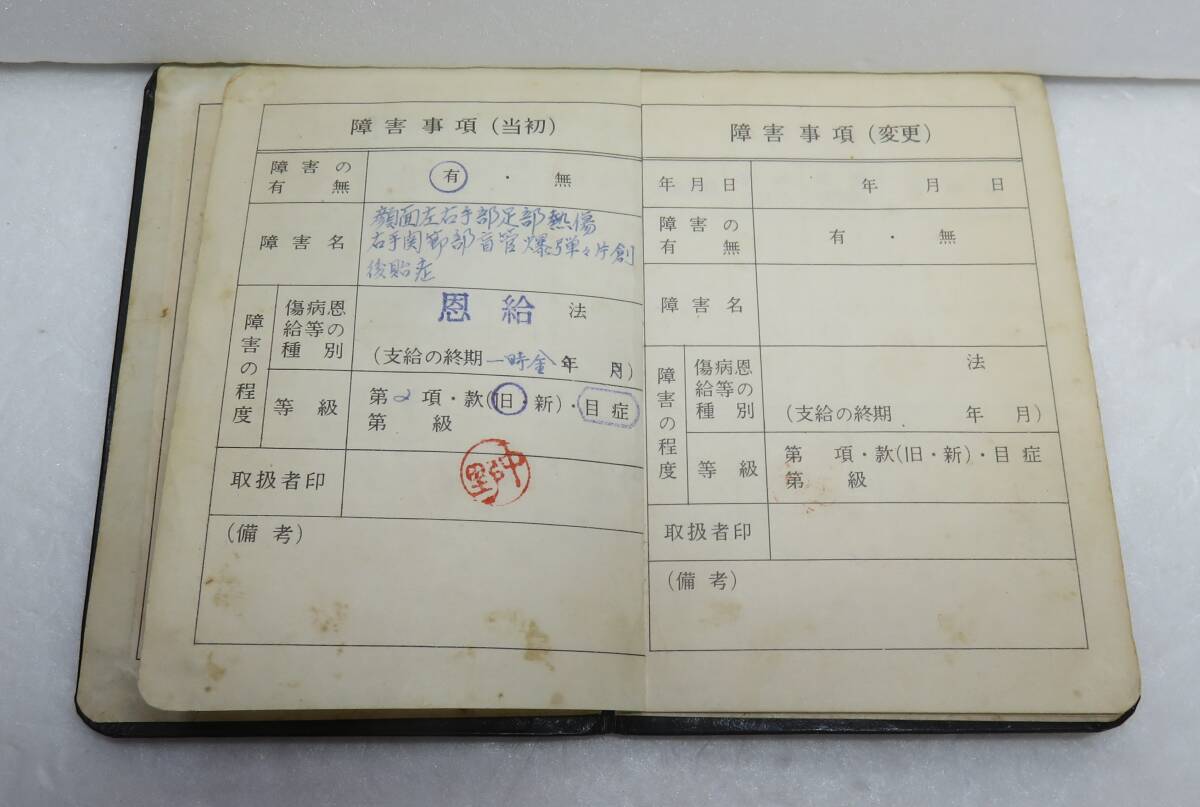 障害事項(当初)
障害の
有無
有・無
障害名
顔面左右手部足部熱傷
右手関節部盲管爆弾々片創
後貽症
障害の程度
傷病恩
給等の
種別
恩給 法
(支給の終期 一時金 年 月)
等級
第2項・款(旧・新)・目症
第 級
取扱者印
(備考)
障害事項(変更)
年月日
年 月 日
障害の
有無
有・無
障害名
障害の程度
傷病恩
給等の
種別
法
(支給の終期 年 月)
等級
第 項・款(旧・新)・目症
第 級
取扱者印
(備考)